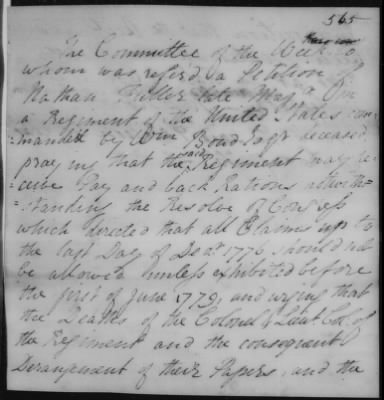 565
The Committee of the Week to
whom was refer'd a Petition of
Nathan Fuller late Majr. in
a Regiment of the United States com-
manded by Wm Bond Esqr deceased
praying that the said Regiment may re-
=ceive Pay and back Rations notwith=
=standing the Resolve of Congress
which directed that all Claims up to
the last Day of Decr. 1776 should not
be allowed unless exhibited before
the first of June 1779, and urging that
the Deaths of the Colonel & Lieut. Col. of
the Regiment and the consequent
Derangement of their Papers, and the